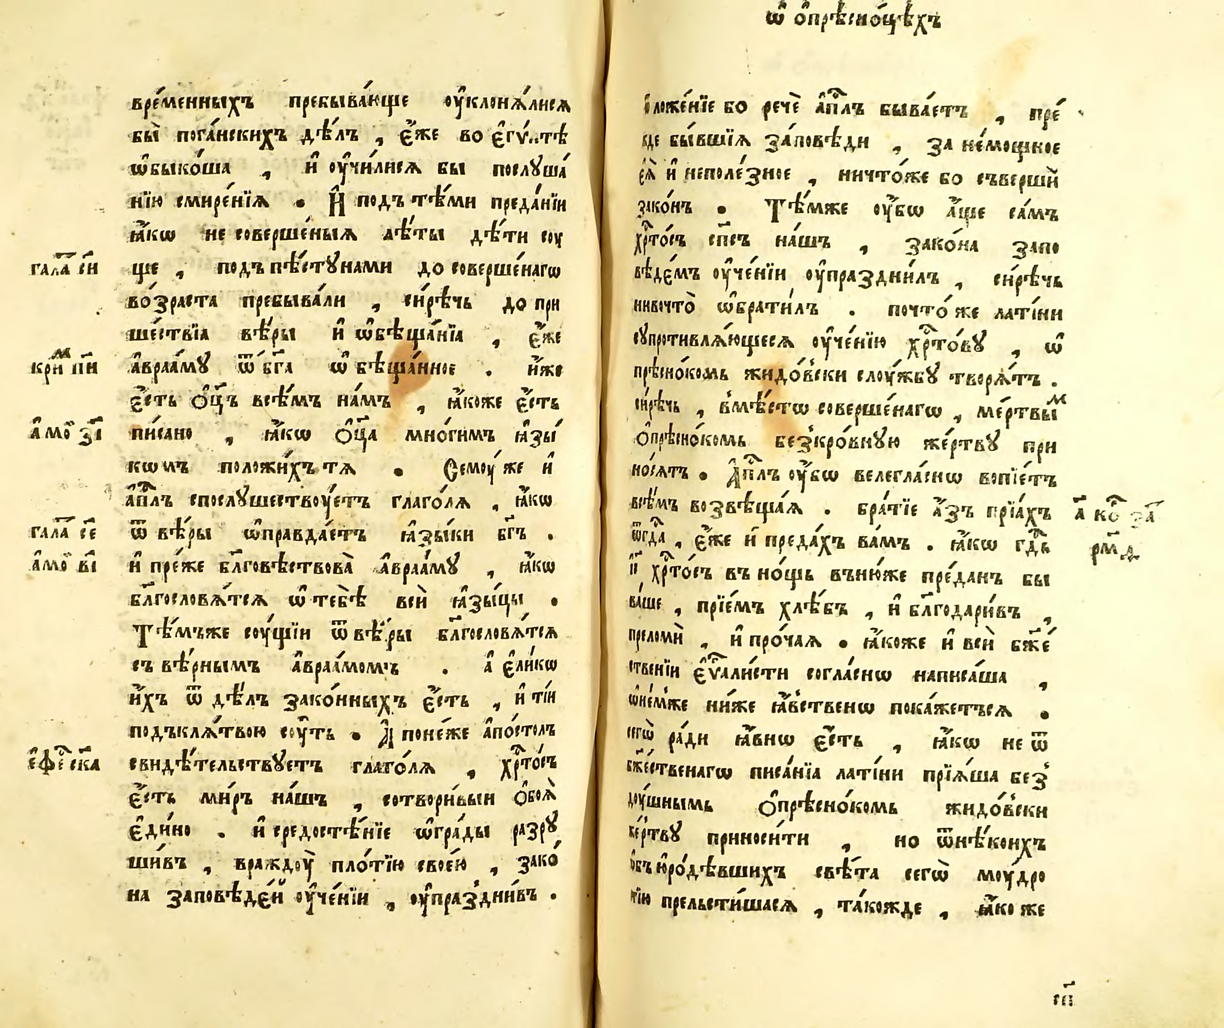 вре́менныхъ пребыва́юще оу҆клоня́лися
бы̀ пога́нскихъ дѣ́лъ , є҆́же во
ѡ҆быко́ша , и҆ оу҆чи́лися бы послꙋша́
нїю смире́нїя . И҆ подъ тѣ́ми преда́нїи
ꙗ҆́кѡ не соверше́ныя лѣ́ты дѣ́ти соу
гала́ сн҃и
ще , подъ пѣ́стꙋнами до соверше́нагѡ
во́зраста пребыва́ли , си́рѣчь до при
ше́ствїа вѣ́ры и҆ ѡ҆бѣща́нїа , є҆́же
а҆враа́мꙋ ѿ бг҃а ѡ҆бѣща́нное . и҆́же
є҆́сть ѻ҆ц҃ъ всѣ́мъ на́мъ , ꙗ҆́коже є҆́сть
пи́сано , ꙗ҆́кѡ ѻ҆ц҃а мно́гимъ ꙗ҆зы́
ко́мъ положи́хъ тѧ . Семоу́ же и҆
а҆пл҃ъ спослꙋшествꙋ́етъ глаго́ля , ꙗ҆́кѡ
ѿ вѣ́ры ѡ҆правда́етъ ꙗ҆зы́ки бг҃ъ .
и҆ пре́же бл҃говѣствова̀ а҆враа́мꙋ , ꙗ҆́кѡ
бл҃гословя́тся ѡ҆ тебѣ̀ всѝ ꙗ҆зы́цы .
Тѣ́мъже соу́щїи ѿ вѣ́ры бл҃гословя́тся
съ вѣ́рнымъ а҆враа́момъ . а҆ є҆ли́кѡ
и҆́хъ ѿ дѣ́лъ зако́нныхъ є҆́сть , и҆ ті́и
подъ кля́твою соу́ть . А҆ поне́же а҆по́столъ
свидѣ́тельствꙋетъ глаго́ля , хр҇то́съ
є҆́сть ми́ръ на́шъ , сотвори́вый ѻ҆боя̀
є҆ди́но . и҆ средостѣ́нїе ѡ҆гра́ды разрꙋ
ши́въ , враждоу̀ пло́тїю свое́ю , зако́
на за́повѣде́й оу҆че́нїи , оу҆праздни́въ .
ѡ҆ ѻ҆прѣсно́цѣхъ
ложе́нїе бо речѐ а҆пл҃ъ быва́етъ , пре́
бы́вшїя за́повѣди , за не́мощное
є҆я̀ и҆ неполе́зное , ничто́же бо съвершѝ
зако́нъ . Тѣ́мже оу҆́бѡ а҆́ще са́мъ
хр҇то́съ сп҃съ на́шъ , зако́на запо
вѣдемъ оу҆че́нїи оу҆праздни́лъ , си́рѣчь
нивочто̀ ѡ҆брати́лъ . почто́ же лати́ни
сꙋпротивля́ющеся оу҆че́нїю хр҇то́вꙋ , ѡ҆
прѣсно́комь жидо́вски слоу́жбꙋ творя́тъ .
си́рѣчь , вмѣ́стѡ соверше́нагѡ , ме́ртвым
ѻ҆прѣсно́комь безкро́внꙋю же́ртвꙋ при
но́сятъ . А҆пл҃ъ оу҆́бѡ велегла́снѡ вопїе́тъ
всѣ́мъ возвѣща́я . бра́тїе а҆́зъ прїя́хъ
є҆́же и҆ преда́хъ ва́мъ . ꙗ҆́кѡ гд҇ь
хр҇то́съ въ но́щь въ ню́же пре́данъ бы
ва́ше , прїе́мъ хлѣ́бъ , и҆ бл҃годари́въ ,
преломѝ , и҆ про́чая . ꙗ҆́коже и҆ всѝ бж҃е́
ственїи є҆ѵ҃али́сти согла́снѡ написа́ша ,
ѡ҆ не́мже ни́же ꙗ҆́вственѡ пока́жетъся .
сегѡ̀ ра́ди ꙗ҆́внѡ є҆́сть , ꙗ҆́кѡ не ѿ
бж҃е́ственагѡ писа́нїа лати́ни прїя́ша без̾
доу́шнымь ѻ҆прѣсно́комь жидо́вски
же́ртвꙋ приноси́ти , но ѿ нѣ́коихъ
ѻ҆бъюро́дѣвшихъ свѣ́та сегѡ̀ моу́дро
прельсти́шася , та́кожде , ꙗ҆́ко же